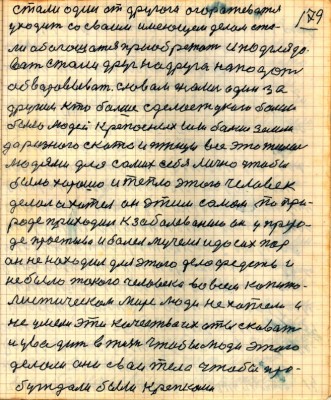 179
стали одни от другога огораживатя
уходит со своим имеющем делом ста-
ли обогощатя приобретат и подгледо-
ват стали друг на друга нападат
обваровыват. словам жыли один за
другим кто болше сделает у каго болше
было людей крепосных или болше земли
да разнога скота и птици все это жыли
людями для самих себя лично чтобы
было харашо и тепло этого человек
делал и хител он этим самом по при-
роде приходил к заболеванию он у приро-
де простывал и болел мучелса и до сих пор
он не находил для этого дела средств и
небыло такога человека во всем капита-
листическом мире люди не хатели и
не умели эти качества их отыскават
и уводит в жызн чтобы люди этого
делали они сваи тела чтобы про-
буждали были крепкими